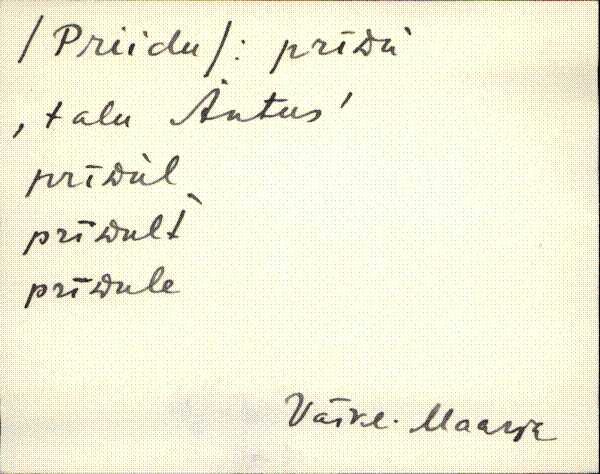 /Priidu/: prīᴅù
‚talu Äntus'
prīᴅùl
prīᴅult̀
prīᴅule
Väike-Maarja